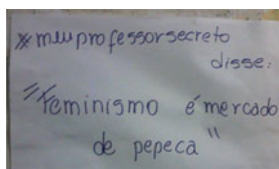 #meuprofessorsecreto
disse:
"Feminismo é mercado
de pepeca"